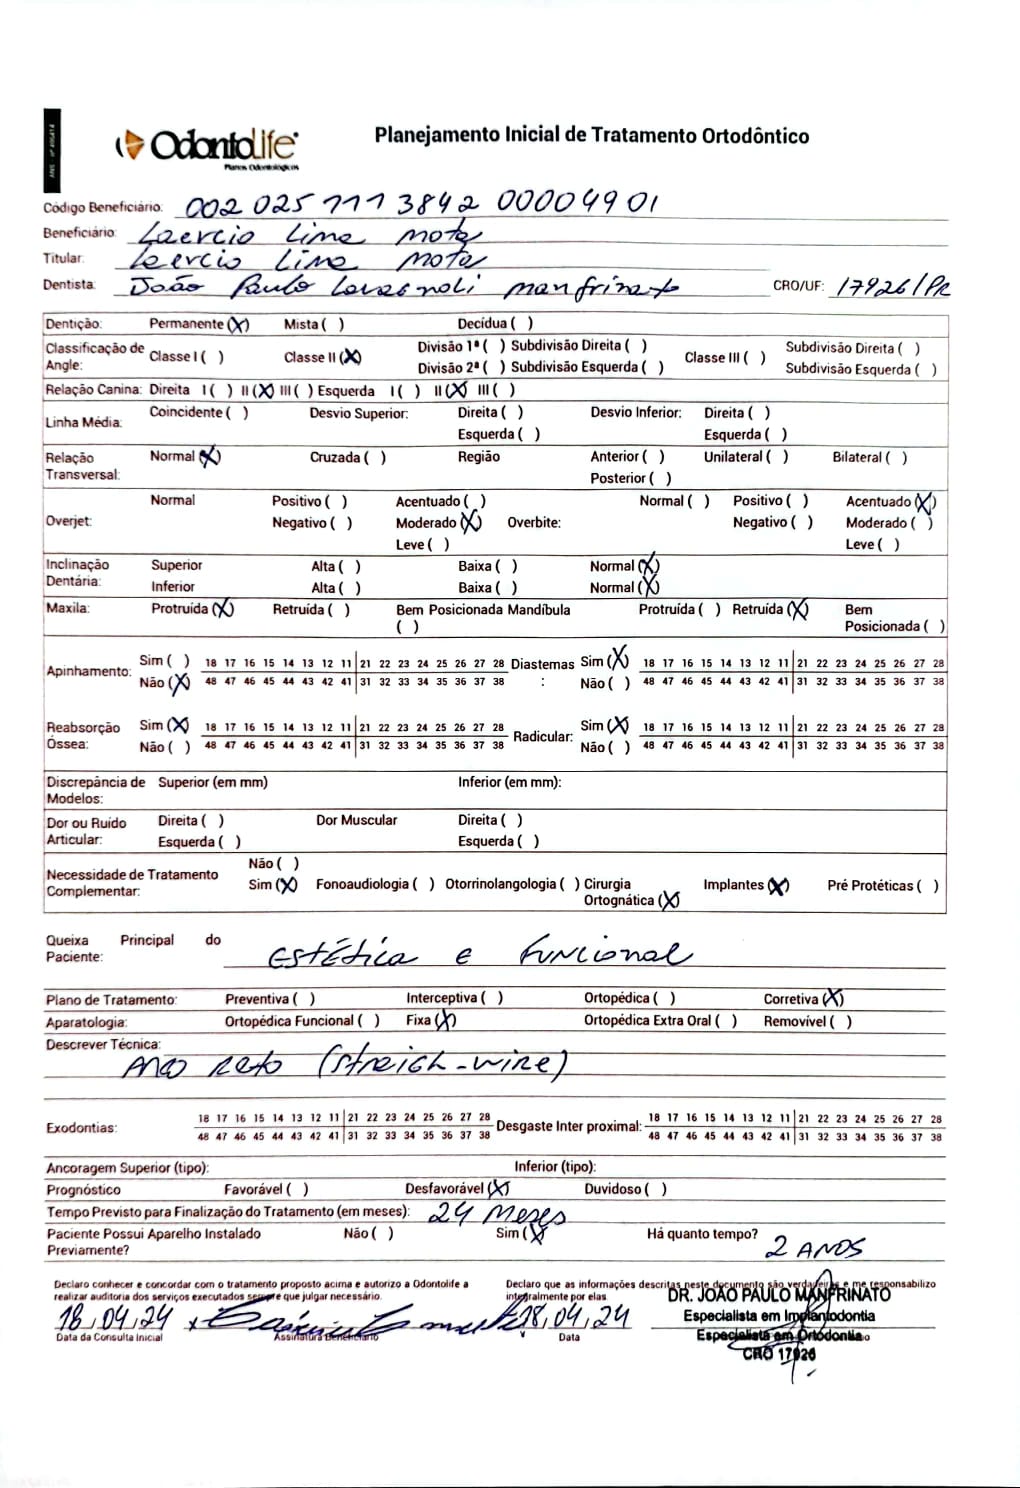 ANS nº 406414
OdontoLife
Planos Odontológicos
Planejamento Inicial de Tratamento Ortodôntico
Código Beneficiário: 002 025 111 3842 00004901
Beneficiário: Laercio Lima Mota
Titular: Laercio Lima Mota
Dentista: João Paulo Manfrinato CRO/UF: 17926/PR
Dentição: Permanente (X) Mista ( ) Decídua ( )
Classificação de Angle: Classe I ( ) Classe II (X) Divisão 1ª ( ) Subdivisão Direita ( ) Classe III ( ) Subdivisão Direita ( )
Divisão 2ª ( ) Subdivisão Esquerda ( ) Subdivisão Esquerda ( )
Relação Canina: Direita I ( ) II (X) III ( ) Esquerda I ( ) II (X) III ( )
Linha Média: Coincidente ( ) Desvio Superior: Direita ( ) Desvio Inferior: Direita ( )
Esquerda ( ) Esquerda ( )
Relação Transversal: Normal (X) Cruzada ( ) Região Anterior ( ) Unilateral ( ) Bilateral ( )
Posterior ( )
Normal Positivo ( ) Acentuado ( ) Normal ( ) Positivo ( ) Acentuado (X)
Overjet: Negativo ( ) Moderado (X) Overbite: Negativo ( ) Moderado ( )
Leve ( ) Leve ( )
Inclinação Dentária: Superior Alta ( ) Baixa ( ) Normal (X)
Inferior Alta ( ) Baixa ( ) Normal (X)
Maxila: Protruída (X) Retruída ( ) Bem Posicionada ( ) Mandíbula Protruída ( ) Retruída (X) Bem Posicionada ( )
Apinhamento: Sim ( ) 18 17 16 15 14 13 12 11 21 22 23 24 25 26 27 28 Diastemas: Sim (X) 18 17 16 15 14 13 12 11 21 22 23 24 25 26 27 28
Não (X) 48 47 46 45 44 43 42 41 31 32 33 34 35 36 37 38 Não ( ) 48 47 46 45 44 43 42 41 31 32 33 34 35 36 37 38
Reabsorção Óssea: Sim (X) 18 17 16 15 14 13 12 11 21 22 23 24 25 26 27 28 Radicular: Sim (X) 18 17 16 15 14 13 12 11 21 22 23 24 25 26 27 28
Não ( ) 48 47 46 45 44 43 42 41 31 32 33 34 35 36 37 38 Não ( ) 48 47 46 45 44 43 42 41 31 32 33 34 35 36 37 38
Discrepância de Modelos: Superior (em mm) Inferior (em mm):
Dor ou Ruído Articular: Direita ( ) Dor Muscular Direita ( )
Esquerda ( ) Esquerda ( )
Necessidade de Tratamento Complementar: Não ( )
Sim (X) Fonoaudiologia ( ) Otorrinolangologia ( ) Cirurgia Ortognática (X) Implantes (X) Pré Protéticas ( )
Queixa Principal do Paciente: Estética e Funcional
Plano de Tratamento: Preventiva ( ) Interceptiva ( ) Ortopédica ( ) Corretiva (X)
Aparatologia: Ortopédica Funcional ( ) Fixa (X) Ortopédica Extra Oral ( ) Removível ( )
Descrever Técnica:
Arco Reto (Streigh-wire)
Exodontias: 18 17 16 15 14 13 12 11 21 22 23 24 25 26 27 28 Desgaste Inter proximal: 18 17 16 15 14 13 12 11 21 22 23 24 25 26 27 28
48 47 46 45 44 43 42 41 31 32 33 34 35 36 37 38 48 47 46 45 44 43 42 41 31 32 33 34 35 36 37 38
Ancoragem Superior (tipo): Inferior (tipo):
Prognóstico Favorável ( ) Desfavorável (X) Duvidoso ( )
Tempo Previsto para Finalização do Tratamento (em meses): 24 Meses
Paciente Possui Aparelho Instalado Previamente? Não ( ) Sim (X) Há quanto tempo? 2 ANOS
Declaro conhecer e concordar com o tratamento proposto acima e autorizo a Odontolife a
realizar auditoria dos serviços executados sempre que julgar necessário.
Declaro que as informações descritas neste documento são verdadeiras e me responsabilizo
integralmente por elas
18/04/24 18/04/24
Data da Consulta Inicial Assinatura Beneficiário Data
DR. JOÃO PAULO MANFRINATO
Especialista em Implantodontia
Especialista em Ortodontia
CRO 17926